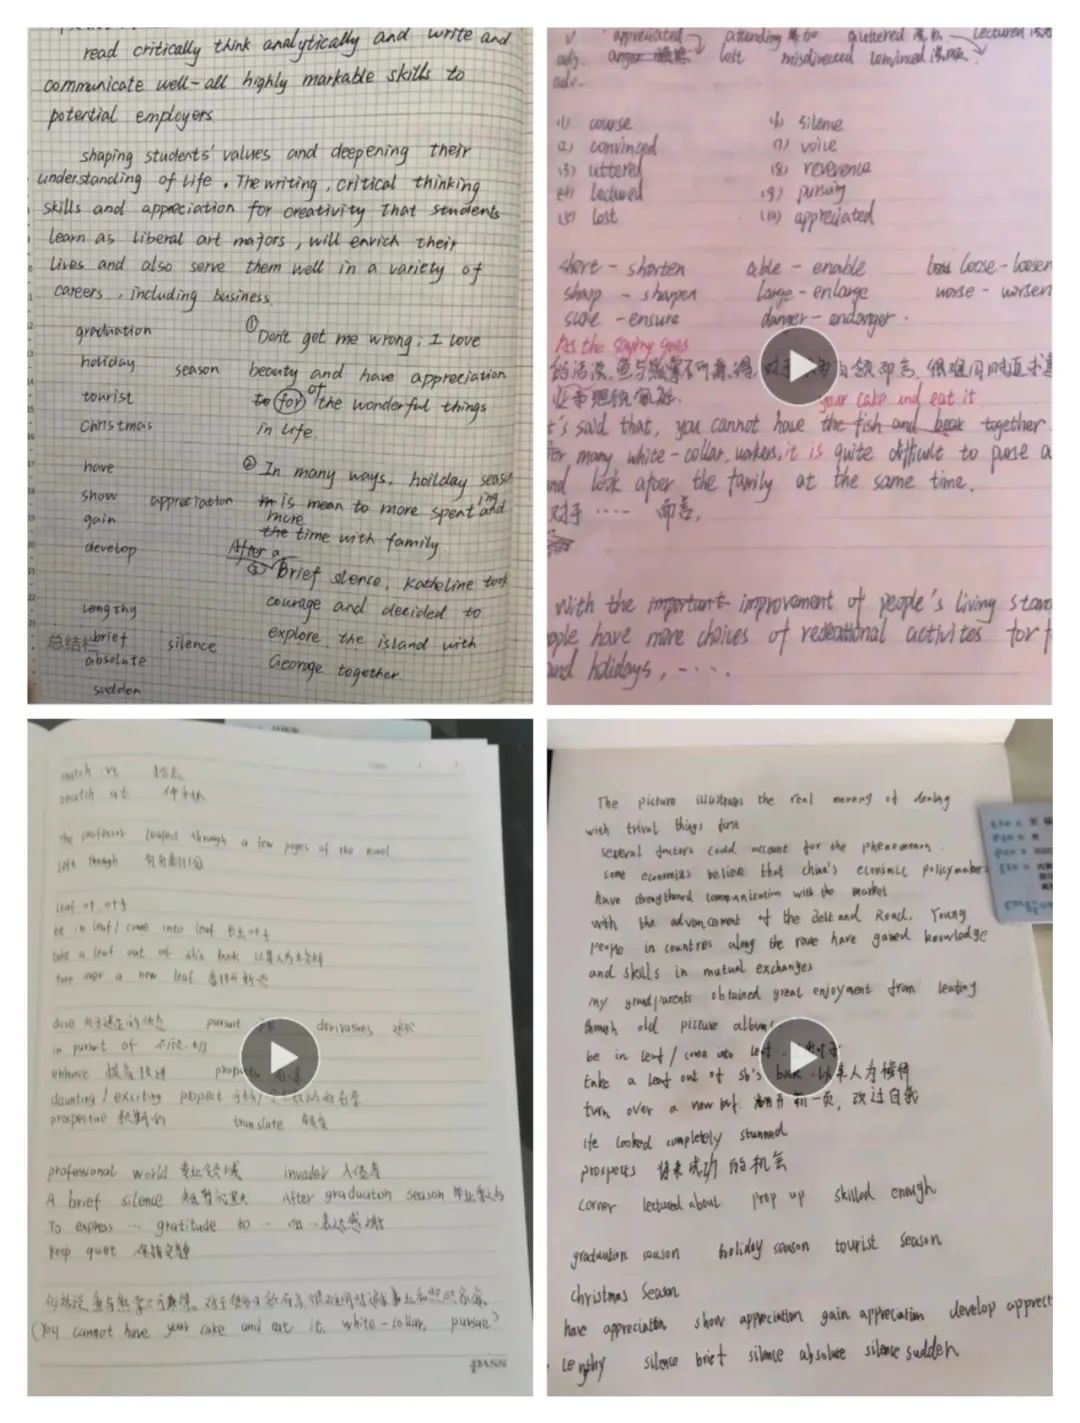 read critically think analytically and write and
communicate well-all highly markable skills to
potential employers
shaping students' values and deepening their
understanding of life. The writing, critical thinking
skills and appreciation for creativity that students
learn as liberal art majors, will enrich their
lives and also serve them well in a variety of
careers, including business.
graduation
holiday
season
tourist
Christmas
have
show
appreciation
gain
develop
Lengthy
总结栏
brief
silence
absolute
sudden
① Don't get me wrong; I love
beauty and have appreciation
to for of the wonderful things
in life.
② In many ways, hoilday season
is mean to more spenting and
more
the time with family
After a
③ Brief slence, Katheline took
courage and decided to
explore the island with
George together
v. appreciated attending uttered lectured
adj. anger lost misdirected convinced
adv.
(1) course
(2) convinced
(3) uttered
(4) lectured
(5) lost
(6) silence
(7) voice
(8) reverence
(9) pursuing
(10) appreciated
short - shorten able - enable loose - loosen
sharp - sharpen large - enlarge worse - worsen
sure - ensure danger - endanger.
As the saying goes
俗话说,鱼与熊掌不可兼得,对于白领而言,很难同时追求事
业
your cake and eat it.
It's said that, you cannot have the fish and bear together.
For many white-collar workers, it is quite difficult to purse a
and look after the family at the same time.
对于 ····· 而言,
With the important improvement of people's living stan
people have more choices of recreational activites for
and holidays, -···.
snatch
snatch at
The professor leafed through a few pages of the novel
be in leaf / come into leaf 长出叶子
take a leaf out of sb's book 以某人为榜样
turn over a new leaf
pursuit derivatives
in pursuit of
enhance
daunting / exciting
prospective translate
professional world 专业领域 invader 入侵者
A brief silence After graduation season
To express ··· gratitude to ··· 向···表达感谢
keep quiet 保持安静
俗话说,鱼与熊掌不可兼得,对于很多白领而言,很难同时追求事业和照顾家庭
(You cannot have your cake and eat it. white-collar, pursue)
PASS
The picture illustrates the real meaning of dealing
with trival things first
several factors could account for the phenomenon.
some economists believe that china's econimic policymakers
have strengthened communication with the market
with the advancement of the Belt and Road, Young
people in countries along the route have gained knowledge
and skills in mutual exchanges
my grandparents obtained great enjoyment from leafing
through old picture albums
be in leaf / come into leaf.
take a leaf out of sb's book. 以某人为榜样
turn over a new leaf. 翻开新一页,改过自我
He looked completely stunned
prospects 将来成功的机会
corner lectured about prop up skilled enough
graduation season holiday season tourist season
christmas season
have appreciation show appreciation gain appreciation develop apprect
Lengthy silence brief silence absolute silence sudden